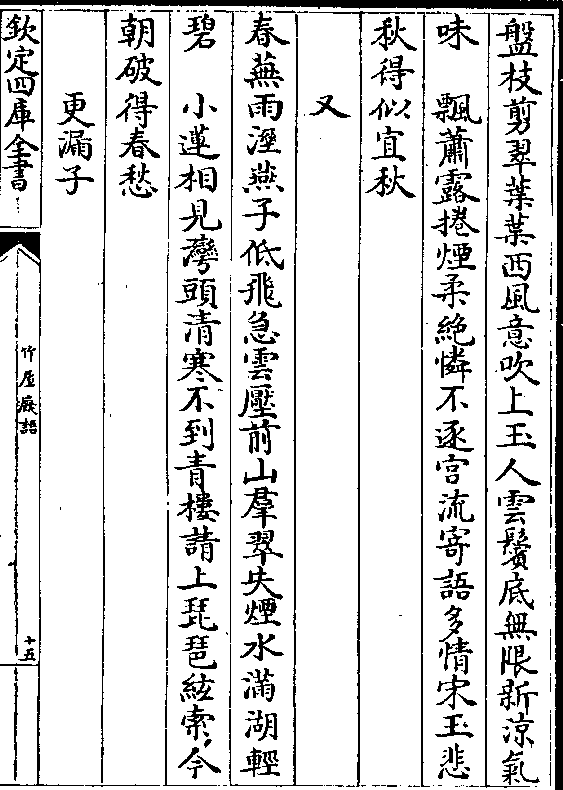 盤枝剪翠葉葉西風意吹上玉人雲鬢底無限新涼氣
味　飄蕭露捲煙柔絶憐不逐宫流寄語多情宋玉悲
秋得似宜秋
又
春蕪雨溼燕子低飛急雲壓前山羣翠失煙水滿湖輕
碧　小蓮相見灣頭清寒不到青樓請上琵琶絃索今
朝破得春愁
更漏子
欽定四庫全書
竹屋癡語
十五